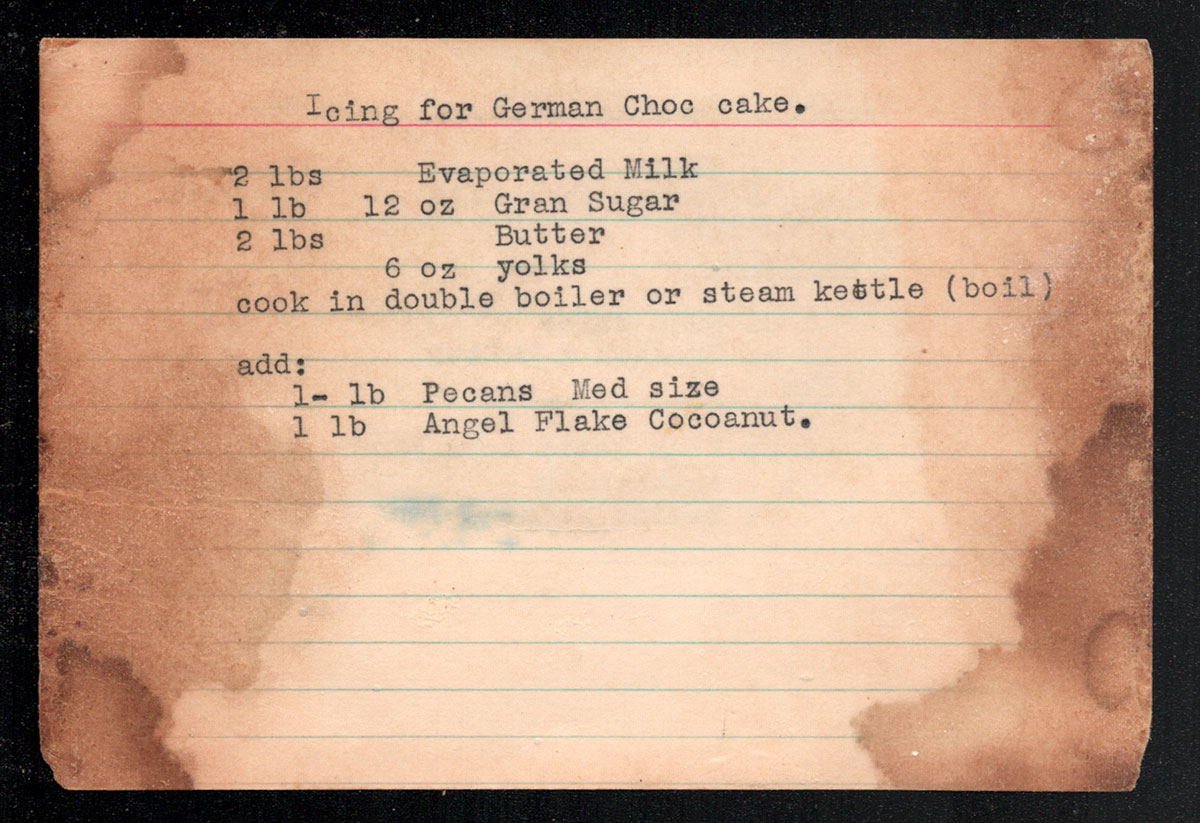 Icing for German Choc cake.
2 lbs Evaporated Milk
1 lb 12 oz Gran Sugar
2 lbs Butter
6 oz yolks
cook in double boiler or steam kettle (boil)
add:
1- lb Pecans Med size
1 lb Angel Flake Cocoanut.